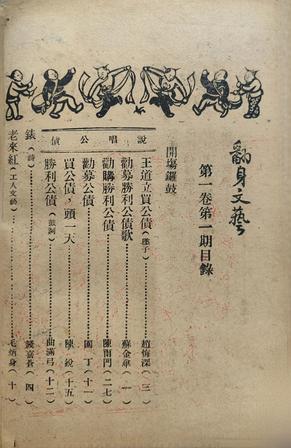 翻身文藝
第一卷第一期目錄
開場鑼鼓
說唱公債
王道立買公債(墜子)趙悔深(三)
勸募勝利公債歌 蘇金傘(一)
勸購勝利公債 陳雨門(二七)
勸募公債 閻丁(十一)
買公債,頭一天 陳銳(十五)
勝利公債(鼓詞)曲滿弓(十二)
錶(詩)錢嘉蒼(四)
老來紅(工人文藝)毛炳身(十)